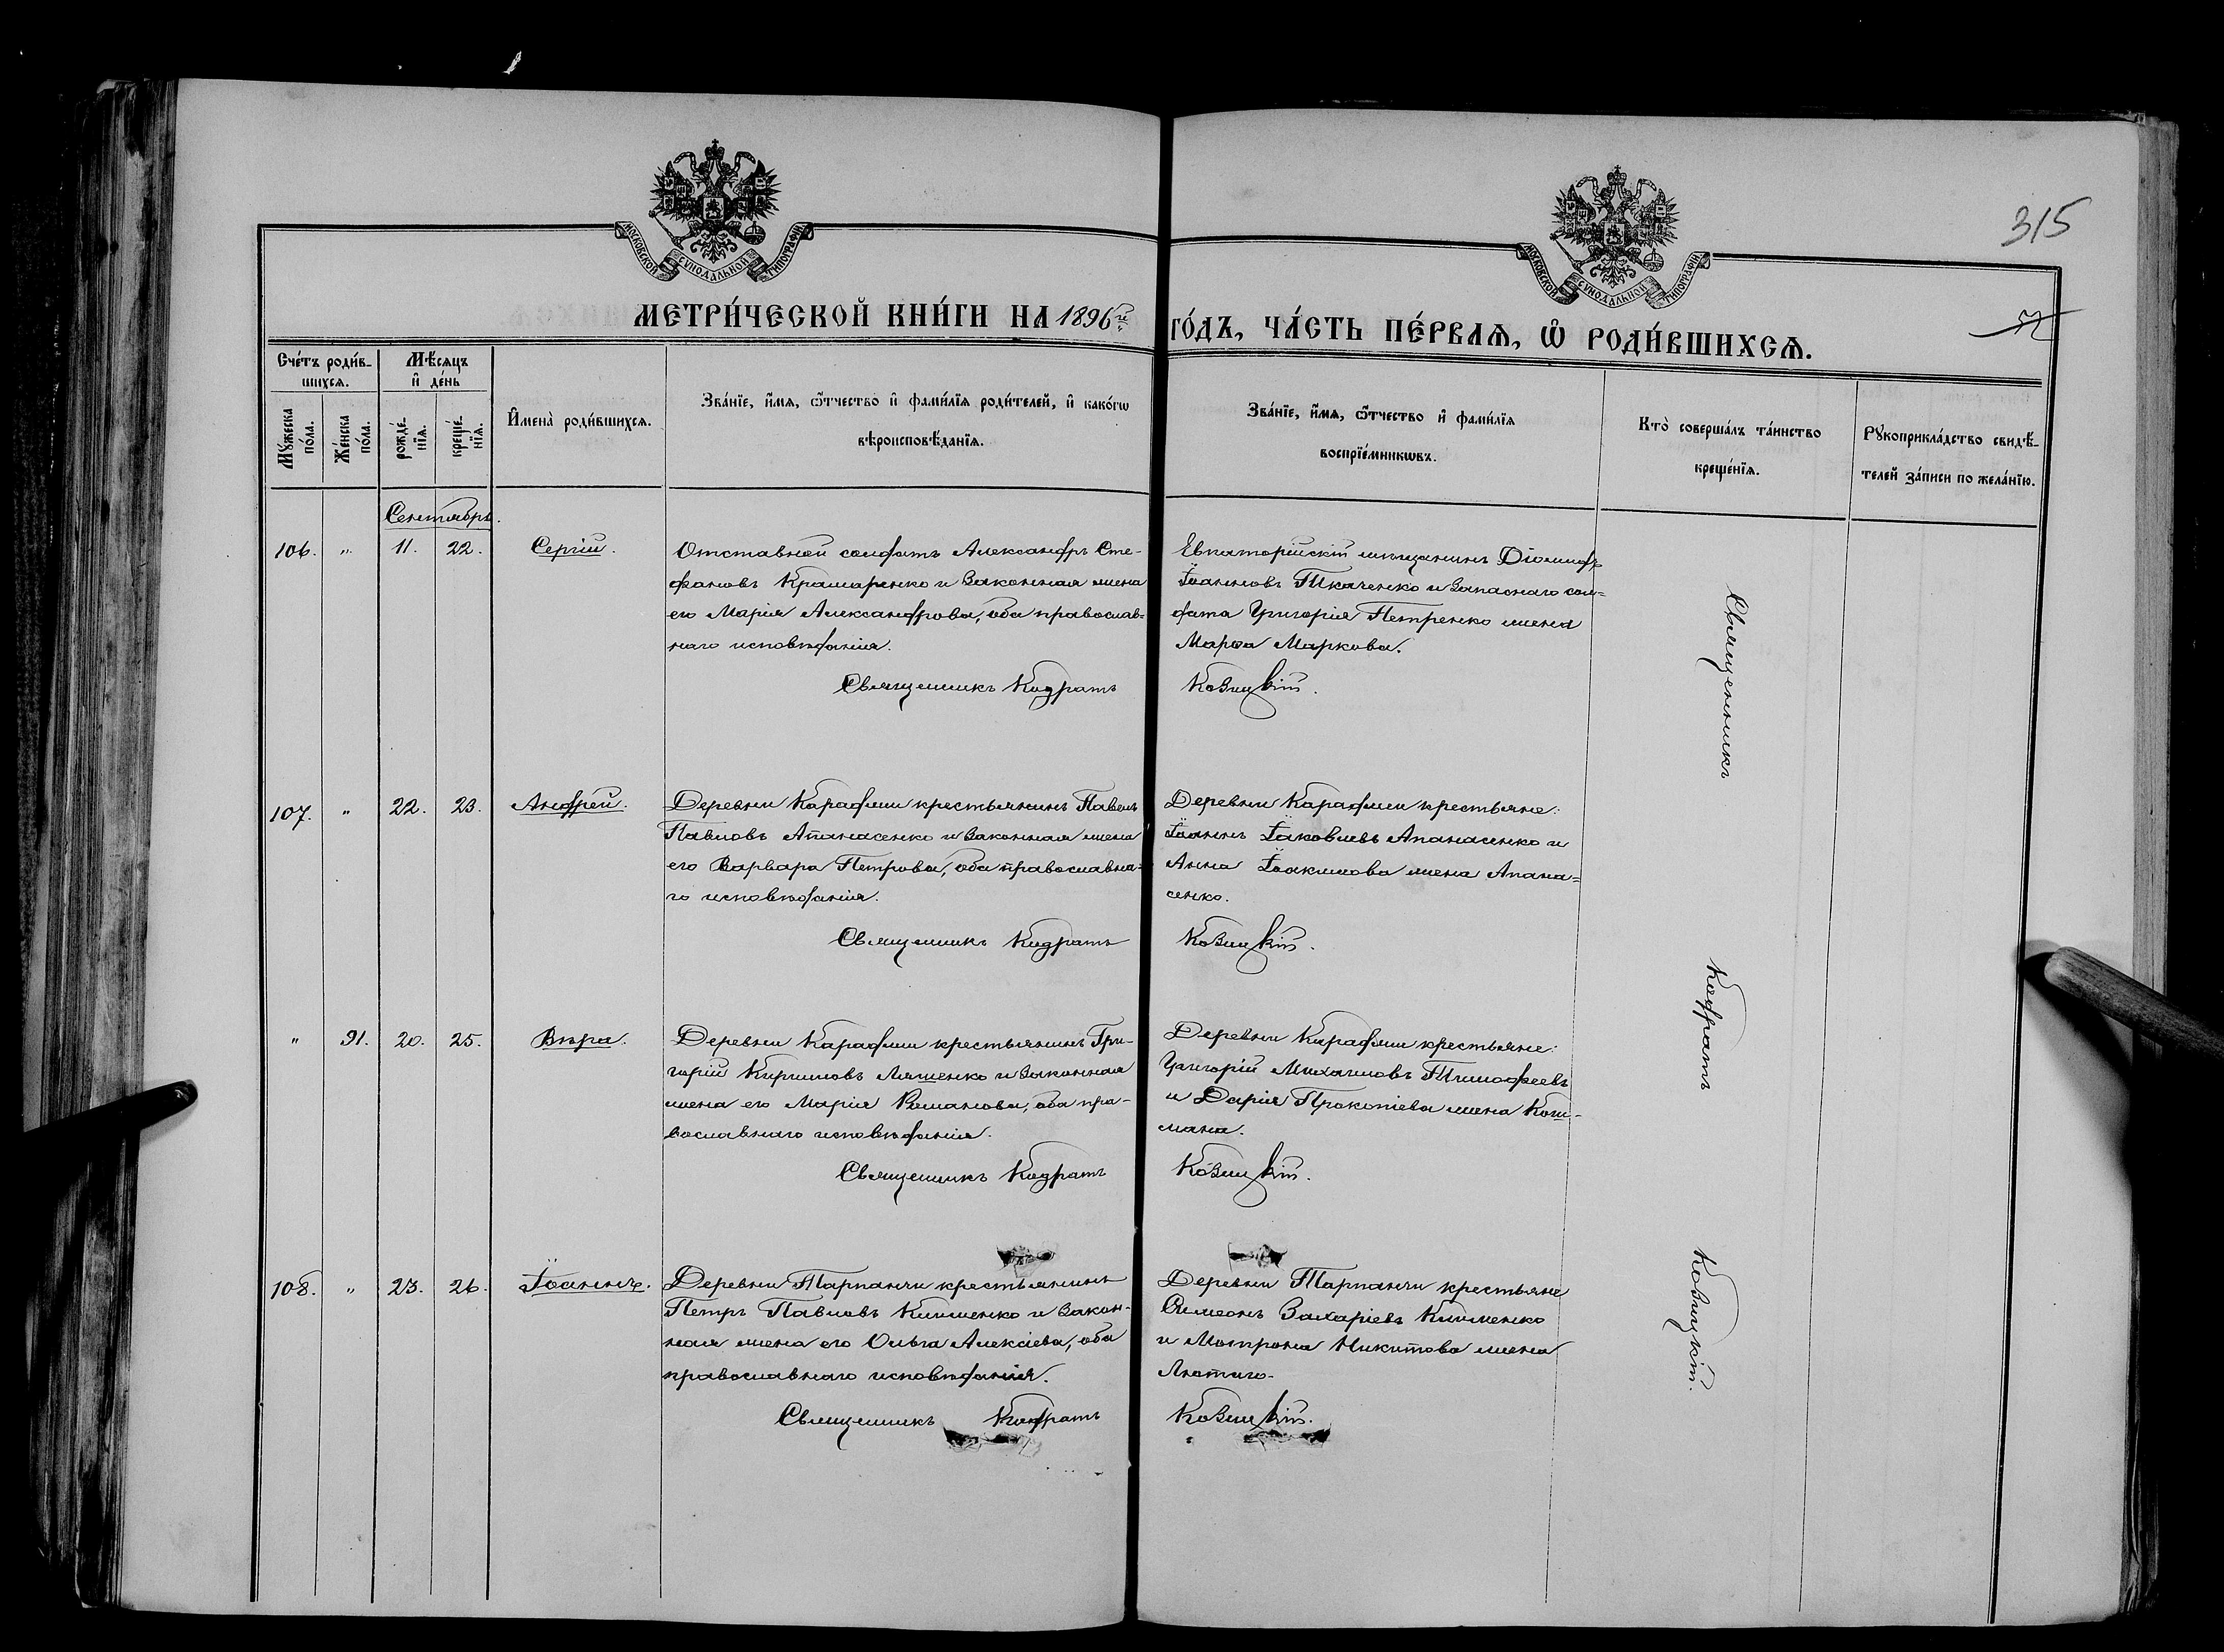 МОСКОВСКОЙ СѴНОДАЛЬНОЙ ТИПОГРАФІИ
МОСКОВСКОЙ СѴНОДАЛЬНОЙ ТИПОГРАФІИ
315
МЕТРИ́ЧЕСКОЙ КНИ́ГИ НА 1896й
ГО́ДЪ, ЧА́СТЬ ПЕ́РВАѦ, Ѡ РОДИ́ВШИХСѦ.
Сче́тъ роди́в-
шихсѧ.
Мѣ́сѧцъ
и҆ де́нь
Мꙋ́жеска
по́ла.
Же́нска
по́ла.
рожде́-
нїѧ.
креще́-
нїѧ.
И҆мена̀ роди́вшихсѧ.
Зва́нїе, и҆́мѧ, ѻ҆́тчество и҆ фами́лїѧ роди́телей, и҆ како́гѡ
вѣроисповѣ́данїѧ.
Зва́нїе, и҆́мѧ, ѻ҆́тчество и҆ фами́лїѧ
воспрїе́мникѡвъ.
Кто̀ соверша́лъ та́инство
креще́нїѧ.
Рꙋкоприкла́дство свидѣ́-
телей за́писи по жела́нїю.
Сентябрь.
106. „ 11. 22. Сергій.
Отставной солдатъ Александръ Сте-
фановъ Крамаренко и законная жена
его Марія Александрова, оба православ-
наго исповѣданія.
Священникъ Кодратъ
Евпаторійскій мѣщанинъ Діомидъ
Іоанновъ Ткаченко и запаснаго сол=
дата Григорія Петренко жена
Марѳа Маркова.
Козицкій.
107. „ 22. 23. Андрей.
Деревни Караджи крестьянинъ Павелъ
Павловъ Апанасенко и законная жена
его Варвара Петрова, оба православна=
го исповѣданія.
Священникъ Кодратъ
Деревни Караджи крестьяне:
Іоаннъ Іаковлевъ Апанасенко и
Анна Іоакимова жена Апана=
сенко.
Козицкій.
„ 91. 20. 25. Вѣра.
Деревни Караджи крестьянинъ Гри-
горій Кирилловъ Ляшенко и законная
жена его Марія Романова, оба пра-
вославнаго исповѣданія.
Священникъ Кодратъ
Деревни Караджи крестьяне:
Григорій Михаиловъ Тимофеевъ
и Дарія Прокопіева жена Кош-
мана.
Козицкій.
108. „ 23. 26. Іоаннъ.
Деревни Тарпанчи крестьянинъ
Петръ Павловъ Клименко и закон-
ная жена его Ольга Алексіева, оба
православнаго исповѣданія.
Священникъ Кодратъ
Деревни Тарпанчи крестьяне
Симеонъ Захаріевъ Клименко
и Мотрона Никитова жена
Лютаго.
Козицкій.
Священникъ
Кодратъ
Козицкій.